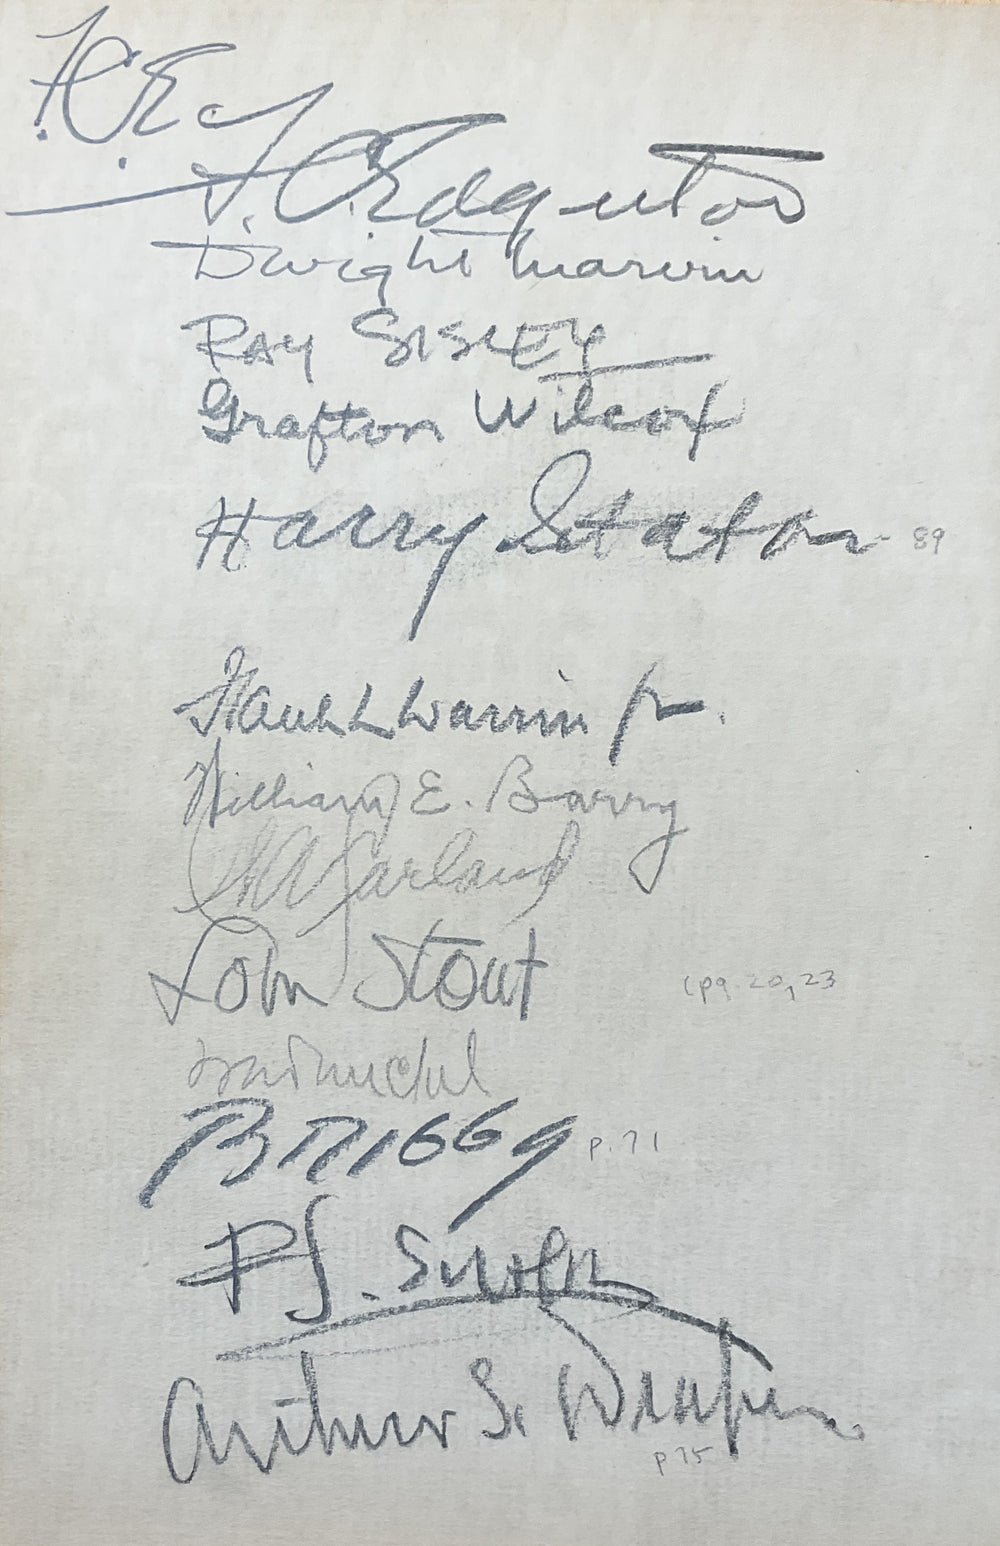 F. C. Edgerton
Dwight Marvin
RAY SISLEY
Grafton Wilcox
Harry Staton 89
L Warrin Jr.
William E. Barry
Garland
Stout (pg. 20, 23
BRIGGS p. 71
P J.
Arthur S. Draper.
p 75